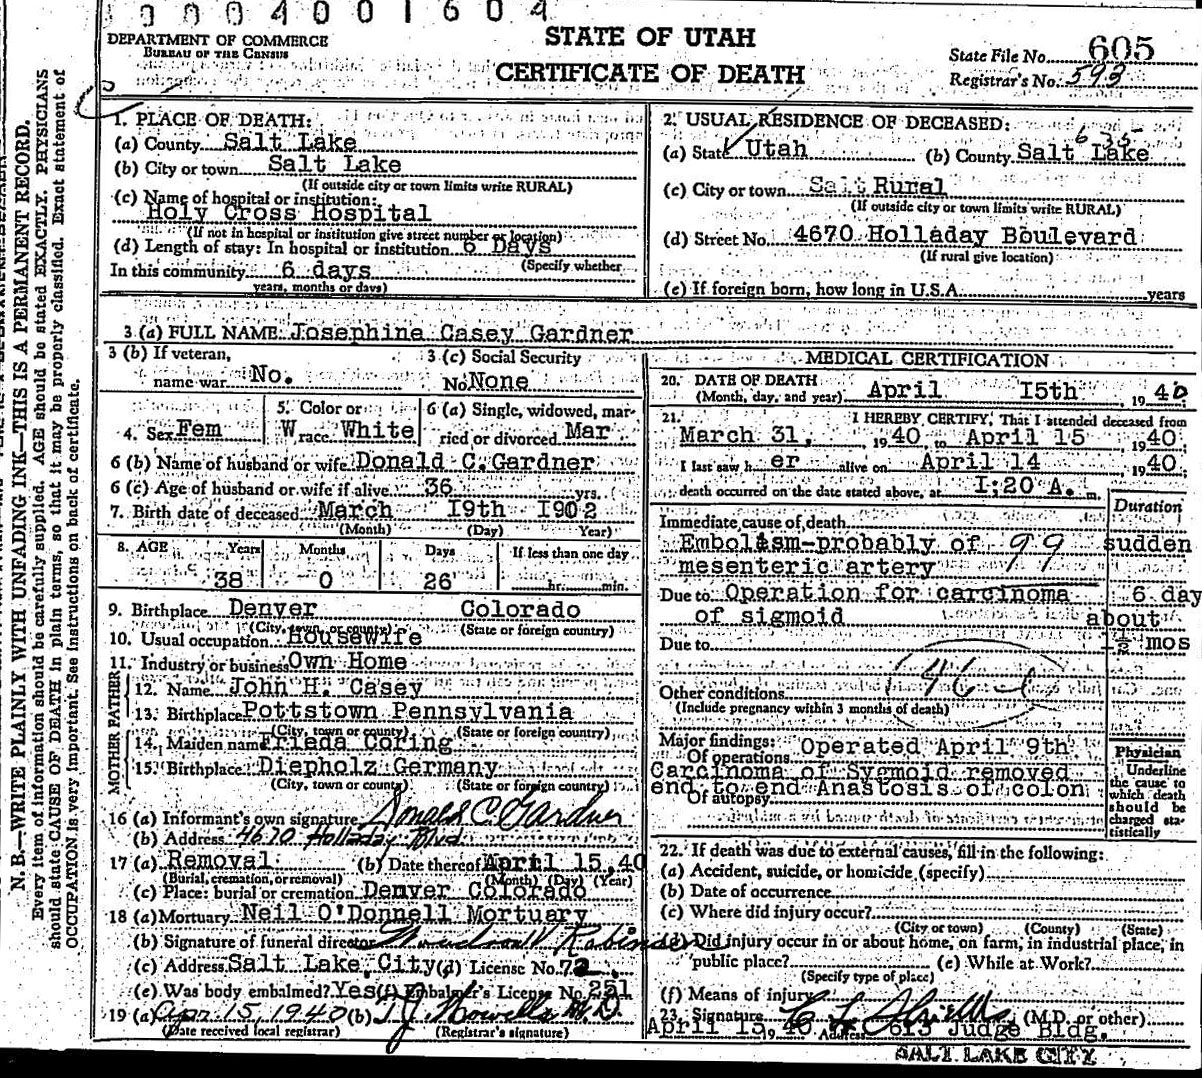 0 0 0 4 0 0 1 6 0 4
DEPARTMENT OF COMMERCE
BUREAU OF THE CENSUS
STATE OF UTAH
CERTIFICATE OF DEATH
State File No. 605
Registrar's No. 593
N. B.—WRITE PLAINLY WITH UNFADING INK—THIS IS A PERMANENT RECORD.
Every item of information should be carefully supplied. AGE should be stated EXACTLY. PHYSICIANS
should state CAUSE OF DEATH in plain terms, so that it may be properly classified. Exact statement of
OCCUPATION is very important. See instructions on back of certificate.
1. PLACE OF DEATH:
(a) County Salt Lake
(b) City or town Salt Lake
(If outside city or town limits write RURAL)
(c) Name of hospital or institution:
Holy Cross Hospital
(If not in hospital or institution give street number or location)
(d) Length of stay: In hospital or institution 6 Days
(Specify whether
In this community 6 days
years, months or days)
2. USUAL RESIDENCE OF DECEASED:
635
(a) State Utah (b) County Salt Lake
(c) City or town Salt Rural
(If outside city or town limits write RURAL)
(d) Street No. 4670 Holladay Boulevard
(If rural give location)
(e) If foreign born, how long in U.S.A. years
3 (a) FULL NAME Josephine Casey Gardner
3 (b) If veteran, name war No.
3 (c) Social Security No. None
4. Sex Fem
5. Color or race W White
6 (a) Single, widowed, married or divorced Mar
6 (b) Name of husband or wife Donald C. Gardner
6 (c) Age of husband or wife if alive 36 yrs.
7. Birth date of deceased March I9th I902
(Month) (Day) Year)
8. AGE Years Months Days If less than one day
38 0 26 hr. min.
9. Birthplace Denver Colorado
(City, town, or county) (State or foreign country)
10. Usual occupation Housewife
11. Industry or business Own Home
FATHER
12. Name John H. Casey
13. Birthplace Pottstown Pennsylvania
(City, town or county) (State or foreign country)
MOTHER
14. Maiden name Frieda Coring
15. Birthplace Diepholz Germany
(City, town or county) (State or foreign country)
16 (a) Informant's own signature Donald C Gardner
(b) Address 4670 Holladay Blvd
17 (a) Removal (b) Date thereof April 15,40
(Burial, cremation, or removal) (Month) (Day) (Year)
(c) Place: burial or cremation Denver Colorado
18 (a) Mortuary Neil O'Donnell Mortuary
(b) Signature of funeral director
(c) Address Salt Lake City (d) License No. 72
(e) Was body embalmed? Yes (f) Embalmer's License No. 251
19 (a) Apr 15, 1940 (b) M.D.
(Date received local registrar) (Registrar's signature)
MEDICAL CERTIFICATION
20. DATE OF DEATH April I5th 1940
(Month, day, and year)
21. I HEREBY CERTIFY, That I attended deceased from
March 31, 1940 to April 15 1940
I last saw her alive on April 14 1940
death occurred on the date stated above, at I;20 A. m.
Duration
Immediate cause of death
Embolism-probably of 99 sudden
mesenteric artery
Due to Operation for carcinoma 6 day
of sigmoid about
Due to mos
Other conditions 46
(Include pregnancy within 3 months of death)
Major findings:
Of operations Operated April 9th
Carcinoma of Sygmoid removed
end to end Anastosis of colon
Of autopsy
Physician
Underline
the cause to
which death
should be
charged sta-
tistically
22. If death was due to external causes, fill in the following:
(a) Accident, suicide, or homicide (specify)
(b) Date of occurrence
(c) Where did injury occur?
(City or town) (County) (State)
(d) Did injury occur in or about home, on farm, in industrial place, in
public place? (e) While at Work?
(Specify type of place)
(f) Means of injury
23. Signature (M.D. or other)
April 15, 40 Address 613 Judge Bldg.
SALT LAKE CITY